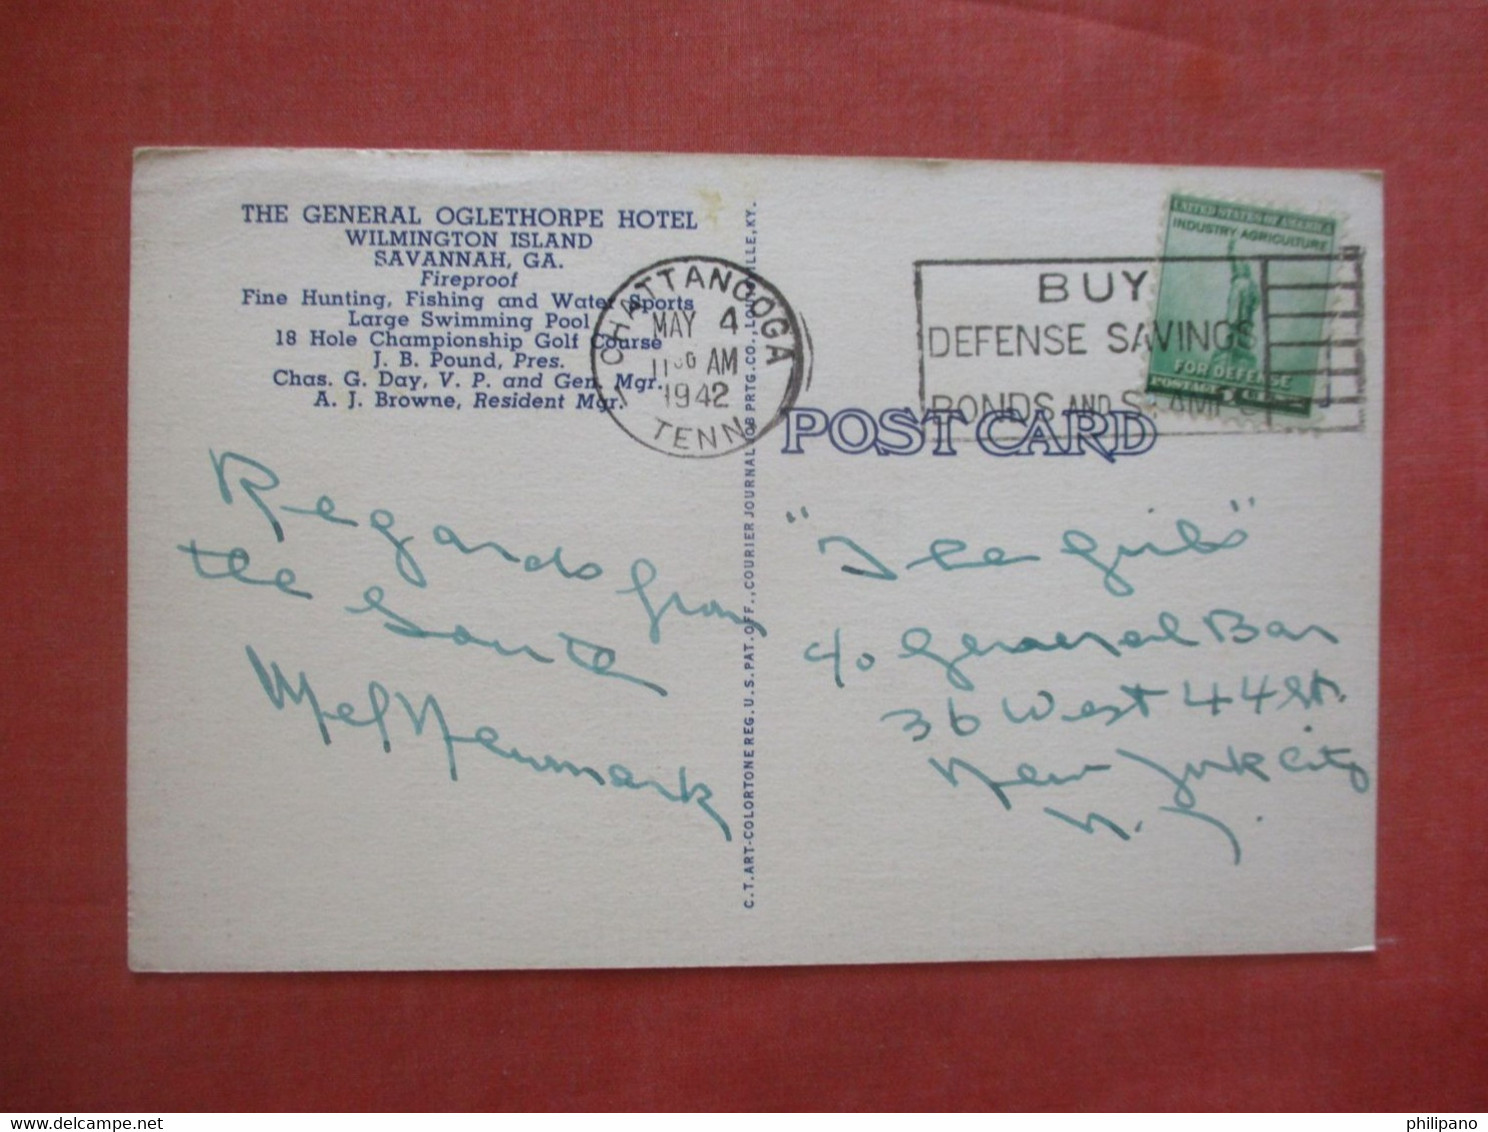 THE GENERAL OGLETHORPE HOTEL
WILMINGTON ISLAND
SAVANNAH, GA.
Fireproof
Fine Hunting, Fishing and Water Sports
Large Swimming Pool
18 Hole Championship Golf Course
J. B. Pound, Pres.
Chas. G. Day, V. P. and Gen. Mgr.
A. J. Browne, Resident Mgr.
CHATTANOOGA
MAY 4
AM
1942
TENN
C.T. ART-COLORTONE REG. U.S. PAT. OFF., COURIER JOURNAL JOB PRTG. CO., LOUISVILLE, KY.
UNITED STATES OF AMERICA
INDUSTRY AGRICULTURE
FOR DEFENSE
POSTAGE 1
BUY
DEFENSE SAVINGS
BONDS AND STAMPS
POST CARD
Regards from
the South
Mel Newmark
"The Girls"
c/o General Bar
36 West 44 St.
New York City
N. Y.
philipano